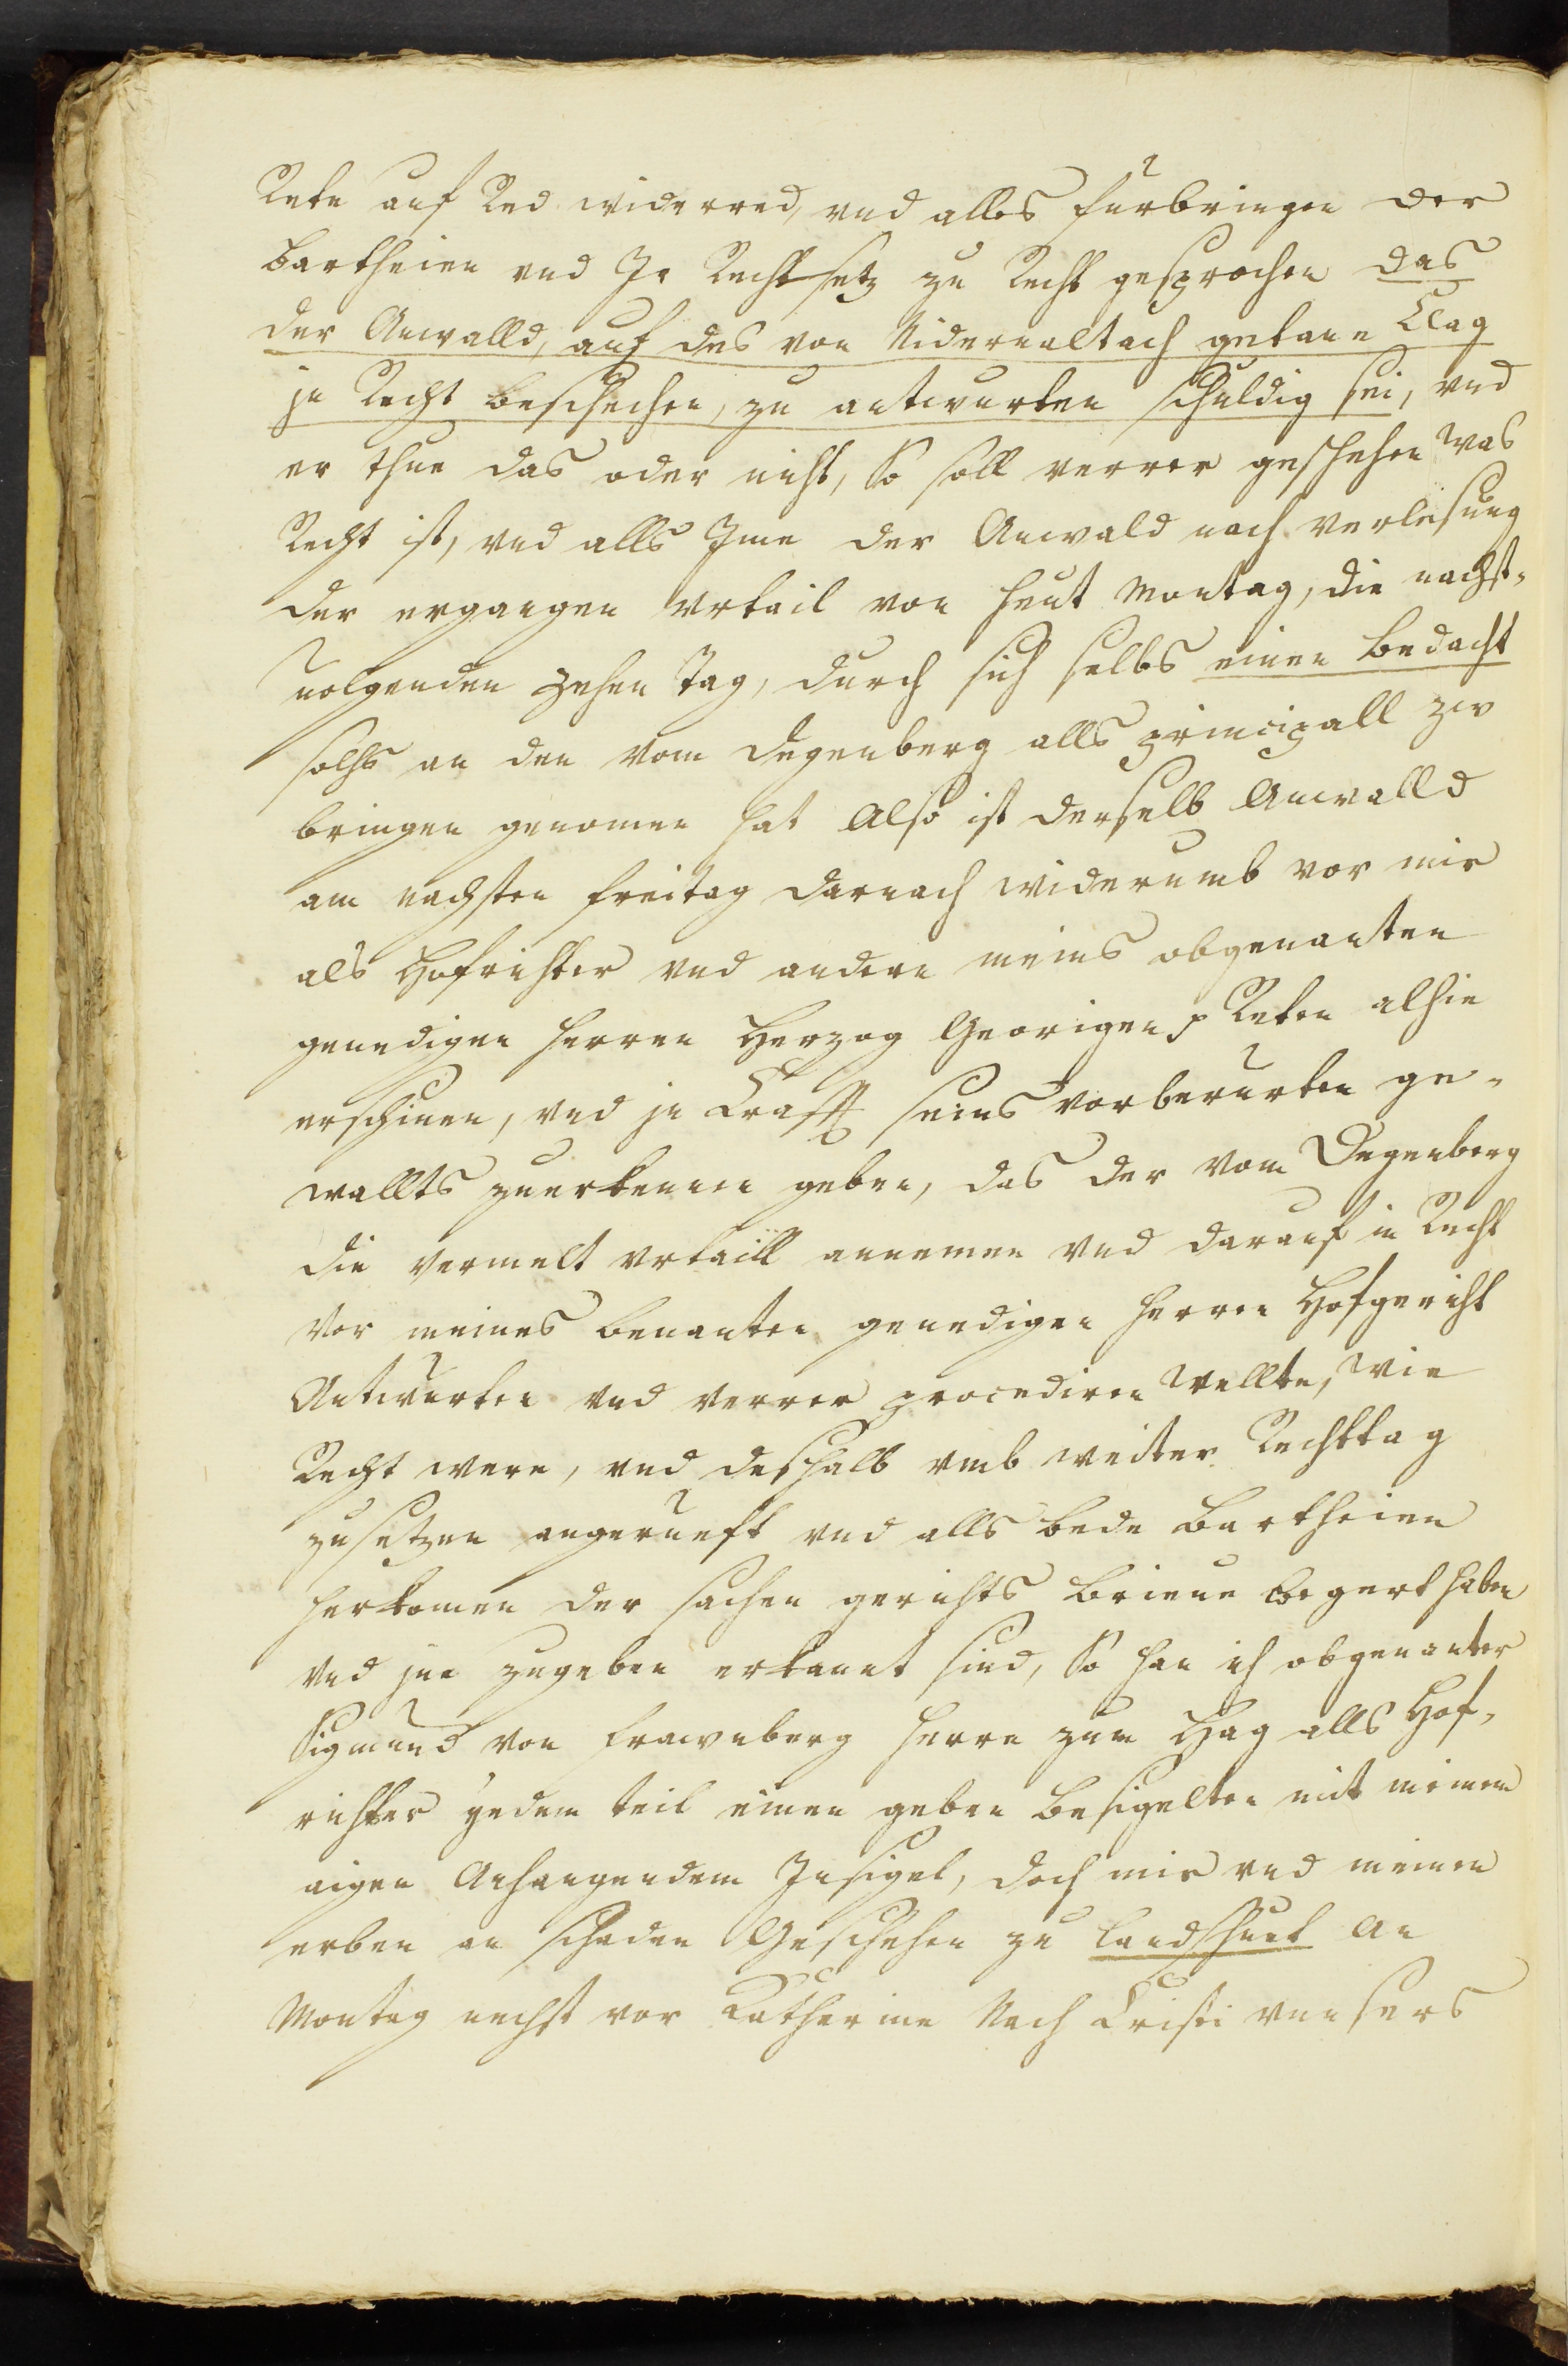 Rete auf Red widerred, vnd alles fürbringen der
Bartheien vnd Jr Rechtsetz zu Recht gesprochen das
der Anwalld, auf des von Nidernaltach getane Clag
jn Recht beschechen, zu antwurten schuldig sei, vnd
er thue das oder nicht, So soll verrer geschehen was
Recht ist, vnd alls Jme der Anwald nach verlesung
der ergangen vrtail von heut Montag, die nachst-
uolgenden zehen Tag, durch sich selbs einen Bedacht
solhs an den vom Degenberg alls principall zw
bringen genomen hat Also ist derselb Anwalld
am nachsten freitag darnach widerumb vor mir
als Hofrichter vnd andern meins obgenanten
genedigen herren Herzog Georigen p Reten alhie
erschinen, vnd jn Crafft seins vorberürten ge-
wallts zuerkennen geben, das der vom Degenberg
die vermelt vrtaill annemen vnd darauf in Recht
vor meines benanten genedigen herren Hofgericht
Antwürten vnd verrer procediren wellte, wie
Recht were, vnd deshalb vmb weiter Rechttag
zusetzen angerüeft vnd alls bede Bartheien
herkomen der sachen gerichts brieue begert haben
vnd jne zugeben erkannt sind, So han ich obgenanter
Sigmund von frawnberg herre zum Hag alls Hof-
richter yedem teil einen geben besigelten mit meinem
aigen Anhangendem Jnsigel, doch mir vnd meinen
erben an schaden Geschehen zu Landshuet An
Montag nechst vor Katherine Nach Cristi vnnsers